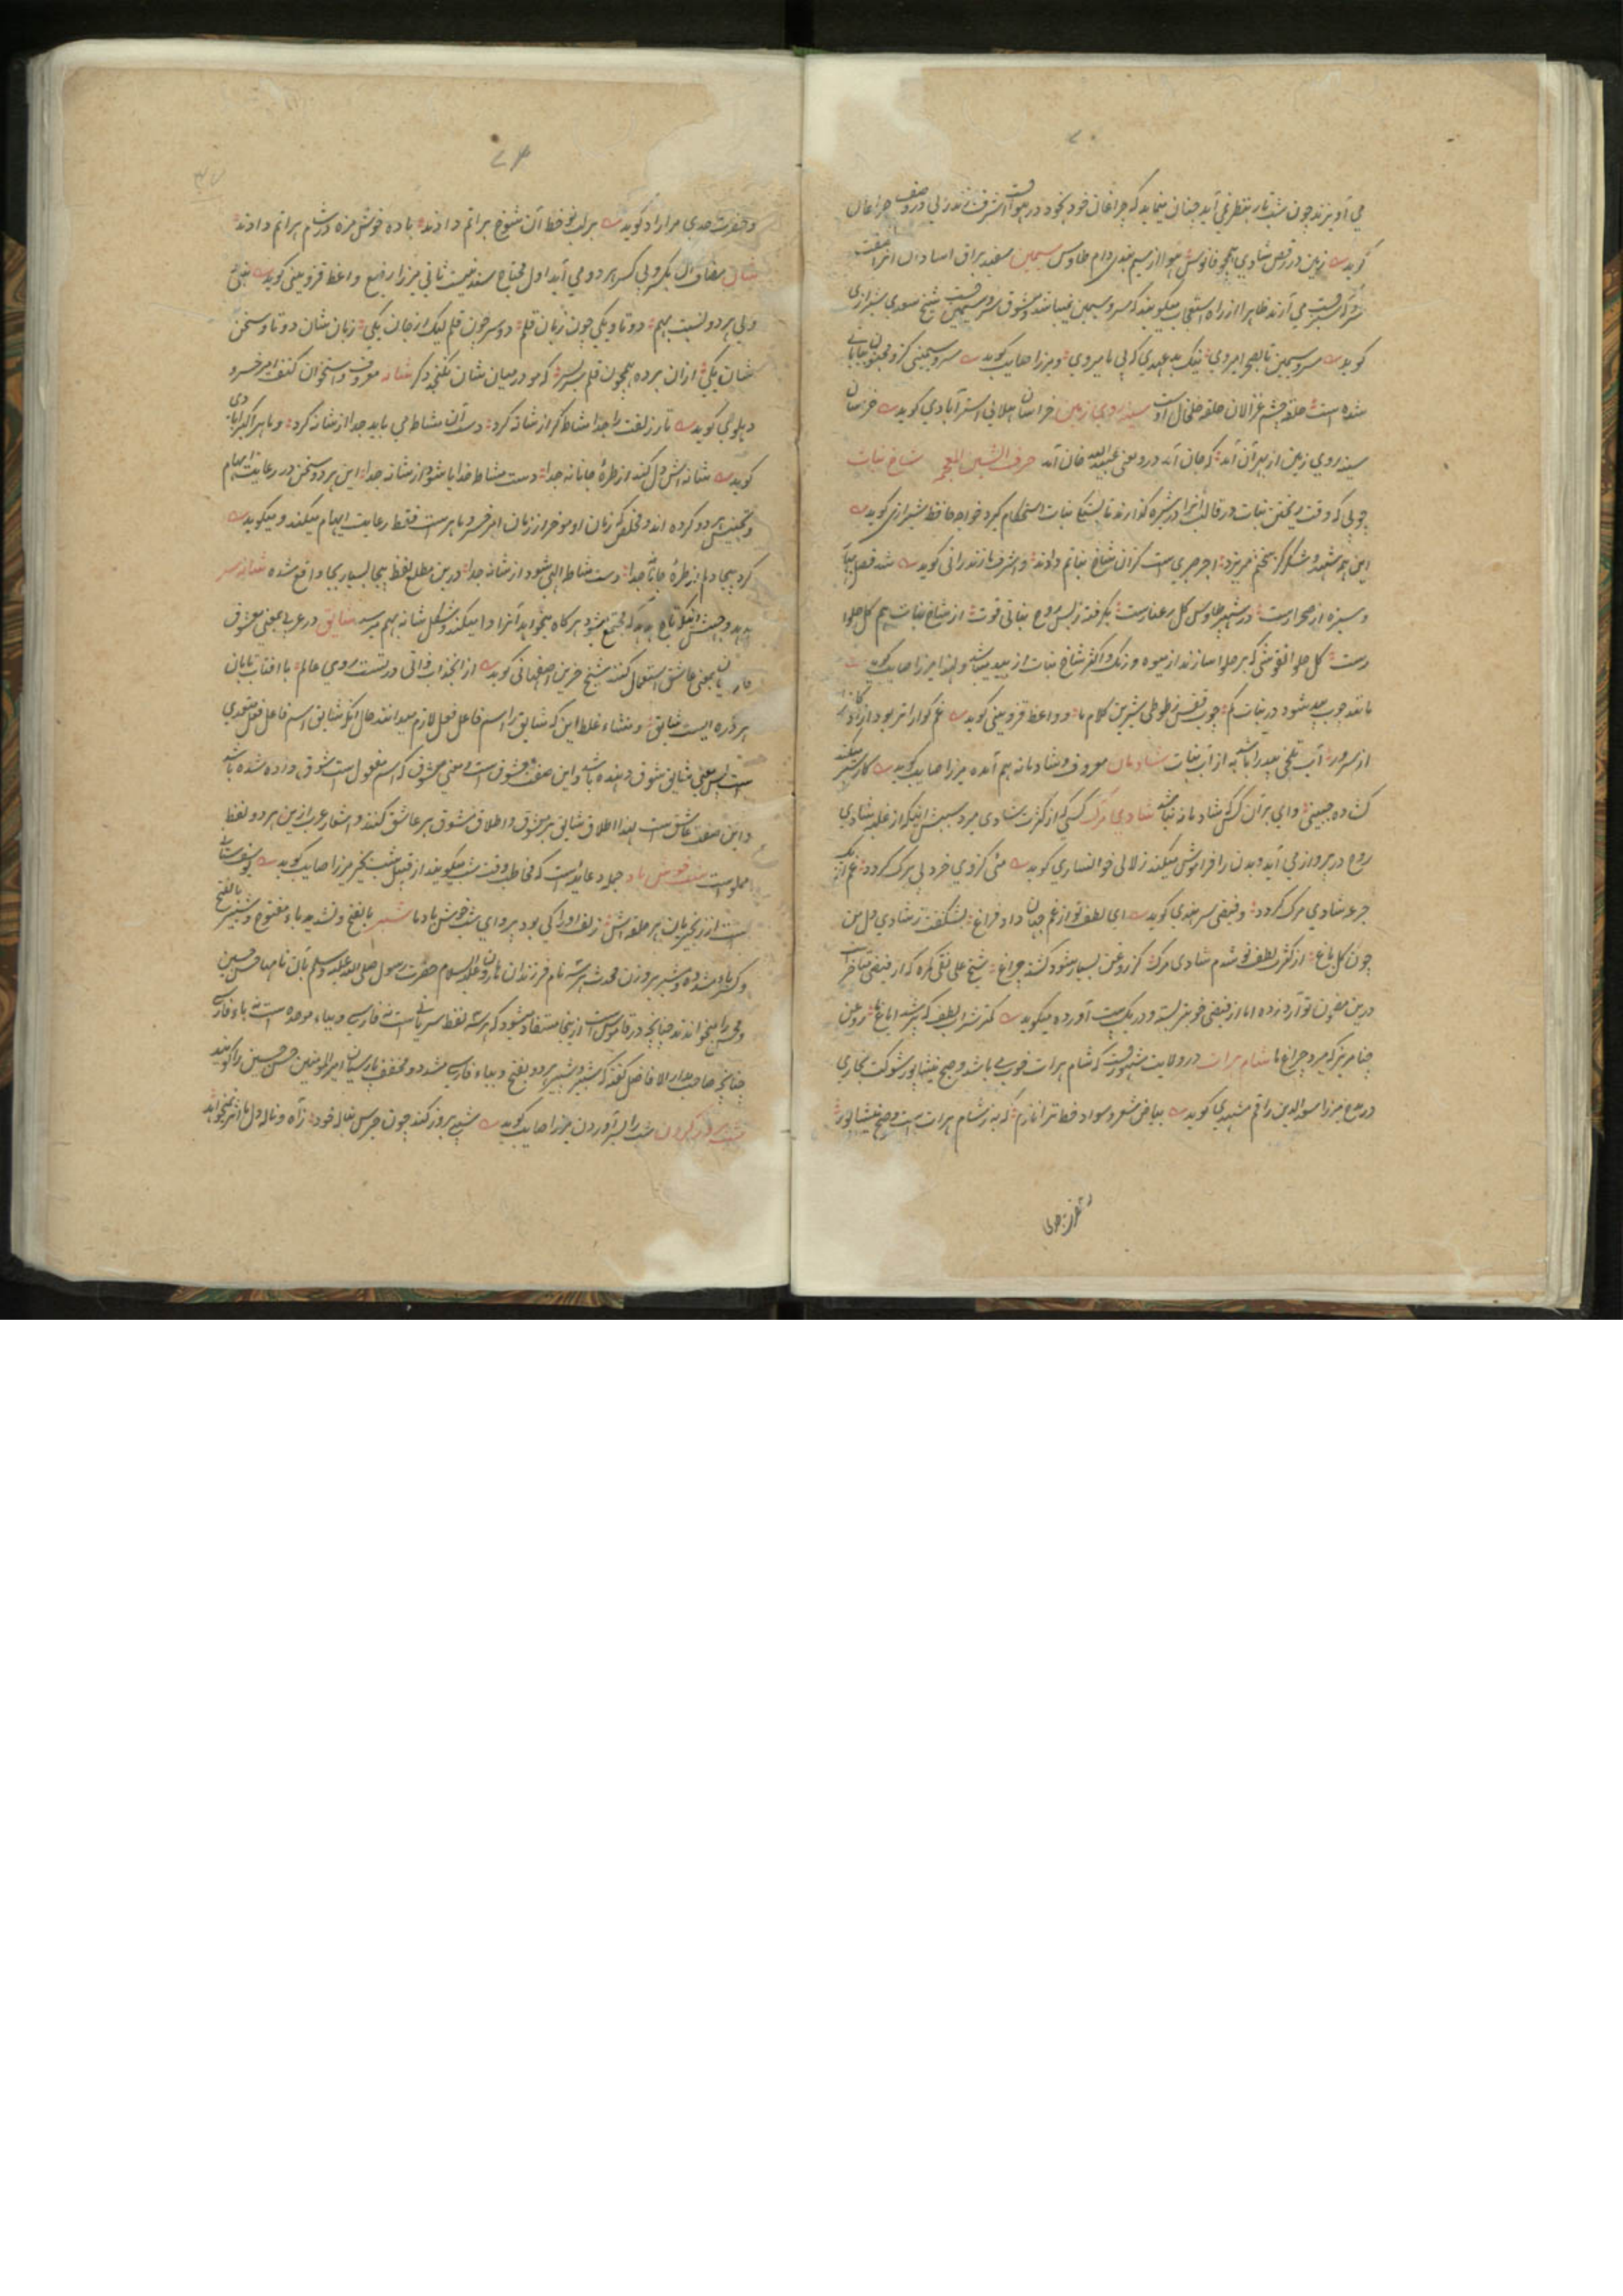 ۷۰
می آویزند چون شب تار بنظر می آید چنان مینماید که چراغان خود بخود در هواست اشرف مازندرانی در وصف چراغان
گوید زمین در رقص شادی همچو فانوس هوا از سیم بندی دام طاوس سیمین سفید براق
می آرند ظاهرا از راه استعجاب میگویند که سرو سیمین نمیباشد معشوق سرو سیمین است شیخ سعدی شیرازی
گوید سرو سیمین تا بصحرا میروی نیک بدعهدی که بی ما میروی و میرزا صایب گوید سرو سیمینی کزو مجنون بیابانی
شده است حلقه چشم غزالان حلقه خلخال اوست سینه روی زمین خراسان هلالی استرآبادی گوید خراسان
سینه روی زمین از بهر آن آمد که جان آمد درو یعنی عبیدالله خان آمد حرف الشین المعجم شاخ نبات
چوبی که وقت ریختن نبات در قالب آنرا در شیره گذارند تا بستیاری نبات استحکام گیرد خواجه حافظ شیرازی گوید
این همه شهد و شکر کز سخنم میریزد اجر صبریست کزان شاخ نباتم دادند و اشرف مازندرانی گوید شد فصل بهار
و سبزه از صحرا رست در شهپر طاوس گل رعنا رست بگرفته ز بس روح نباتی قوت از شاخ نبات هم گل حلوا
رست گل حلوا نقوشی که بر حلوا سازند از میوه و رنگ و اکثر شاخ نبات از بید میباشد ولهذا میرزا صایب گوید
مانند چوب بید شود در نبات گم چوب قفس ز طوطی شیرین کلام ما و واعظ قزوینی گوید غم گوارا تر بود آزاده را
از سرور آب تلخی بید را باشد به از آب نبات شادمان معروف و شادمانه هم آمده میرزا صایب گوید کار شیر میکند
گشاده جبینی وای بر آن کس که شادمانه نباشد شادی مرگ کسی که از کثرت شادی میرد سببش اینکه از غلبه شادی
روح در پرواز می آید و بدن را فراموش میکند زلالی خوانساری گوید
جرعه شادی مرگ گردد و فیضی سرهندی گوید ای لطف تو از غم جهان داد فراغ بشگفت ز شادی دل من
چون گل باغ از کثرت لطف تو شدم شادی مرگ کز روغن بسیار شود کشته چراغ شیخ علی نقی کمره که از فیضی متاخر است
درین مضمون توارد زده اما از فیضی خوبتر بسته و در یک بیت آورده میگوید کمتر شراب لطف که پر شد ایاغ ما روغن
چنان مریز که میرد چراغ ما شام هرات در ولایت مشهور است که شام هرات خوب می باشد و صبح نیشاپور شوکت بخاری
در مدح میرزا سعدالدین راقم مشهدی گوید بیاض شعر و سواد خط ترا نازم که به ز شام هرات است و صبح نیشاپور
۷۱
و حضرت جدی مرا راد گوید بر لب او خط آن شوخ براتم دادند باده خوش مزه در شام هراتم دادند
شان مضاف الیه بکسر و بی کسر هر دو می آید اول محتاج سند نیست ثانی میرزا رفیع واعظ قزوینی گوید
ولی هر دو نسبت بهم دو تا و یکی چون زبان قلم دو سر چون قلم لیک از جان یکی زبان شان دو تا و سخن
شان یکی ازان برده همچون قلم سر بسر که مو در میان شان نگنجد دگر شانه معروف و استخوان کتف امیر خسرو
دهلوی گوید تار زلفت را جدا مشاطه گر از شانه کرد دست آن مشاط می باید جدا از شانه کرد و ماهر اکبرآبادی
گوید شانه اش دل کند از طره جانانه جدا دست مشاطه خدایا شود از شانه جدا این هر دو سخن در رعایت ایهام
و تجنیس هر دو کرده اند و مخلص که زمان او موخر از زمان امیر خسرو و ماهر است فقط رعایت ایهام میکند و میگوید
کرد بیجا دلم از طره جانانه جدا دست مشاط الهی شود از شانه جدا درین مطلع لفظ بیجا بسیار بجا واقع شده شانه سر
هدهد وجهش اینکه تاج هدهد که مجتمع میشود هرگاه میخواهد آنرا وا میکند و شکل شانه بهم میرسد شایق در عربی بمعنی معشوق
فارسیان بمعنی عاشق استعمال کنند شیخ حزین اصفهانی گوید از انجذاب ذاتی در تست روی عالم با آفتاب تابان
هر ذره ایست شایق و منشاء غلط این که شایق را اسم فاعل فعل لازم میدانند حال آنکه شایق اسم فاعل فعل متعدی
است پس معنی شایق شوق دهنده باشد و این صفت معشوق است و معنی مشوق که اسم مفعول است شوق زده شده باشد
و این صفت عاشق است لهذا اطلاق شایق بر معشوق و اطلاق مشوق بر عاشق کنند و اشعار عرب ازین هر دو لفظ
مملوست شب خوش باد جمله دعائیه است که مخاطب وقت شب میگویند از قبیل شب بخیر میرزا صایب گوید
است از زنجیر بان هر حلقه اش زلف او را کی بود پروای شب خوش باد ما شبر بالفتح و تشدید باء مفتوح و شبیر بالفتح
و کسر باء مشدده و مشبر بر وزن محدث هر سه نام فرزندان هارون علیه السلام حضرت رسول صلی الله علیه وسلم بآن نامها حسن و حسین
و محسن را میخواندند چنانچه در قاموس است ازینجا مستفاد میشود که هر سه لفظ سریانی است نه فارسی و بباء موحده است نه باء فارسی
چنانچه صاحب مدار الافاضل گفته که شبر و شبیر هر دو بفتح و بباء فارسی مشدد و مخفف پارسیان امیرالمومنین حسن و حسین را گویند
شب بروز کردن شب را بسر آوردن میرزا صایب گوید شبی بروز کند چون جرس بناله خود ز آه و ناله دل ما اثر نمیخواهد